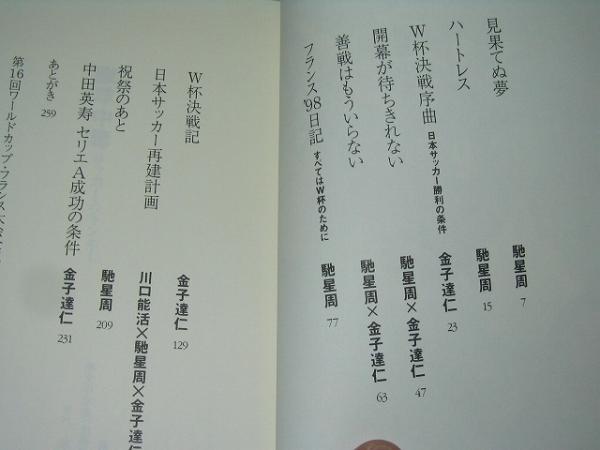 見果てぬ夢 馳星周 7
ハートレス 馳星周 15
W杯決戦序曲 日本サッカー勝利の条件 金子達仁 23
開幕が待ちきれない 馳星周×金子達仁 47
善戦はもういらない 馳星周×金子達仁 63
フランス'98日記 すべてはW杯のために 馳星周 77
W杯決戦記 金子達仁 129
日本サッカー再建計画 川口能活×馳星周×金子達仁
祝祭のあと 馳星周 209
中田英寿 セリエA成功の条件 金子達仁 231
あとがき 259
第16回ワールドカップ・フランス大会